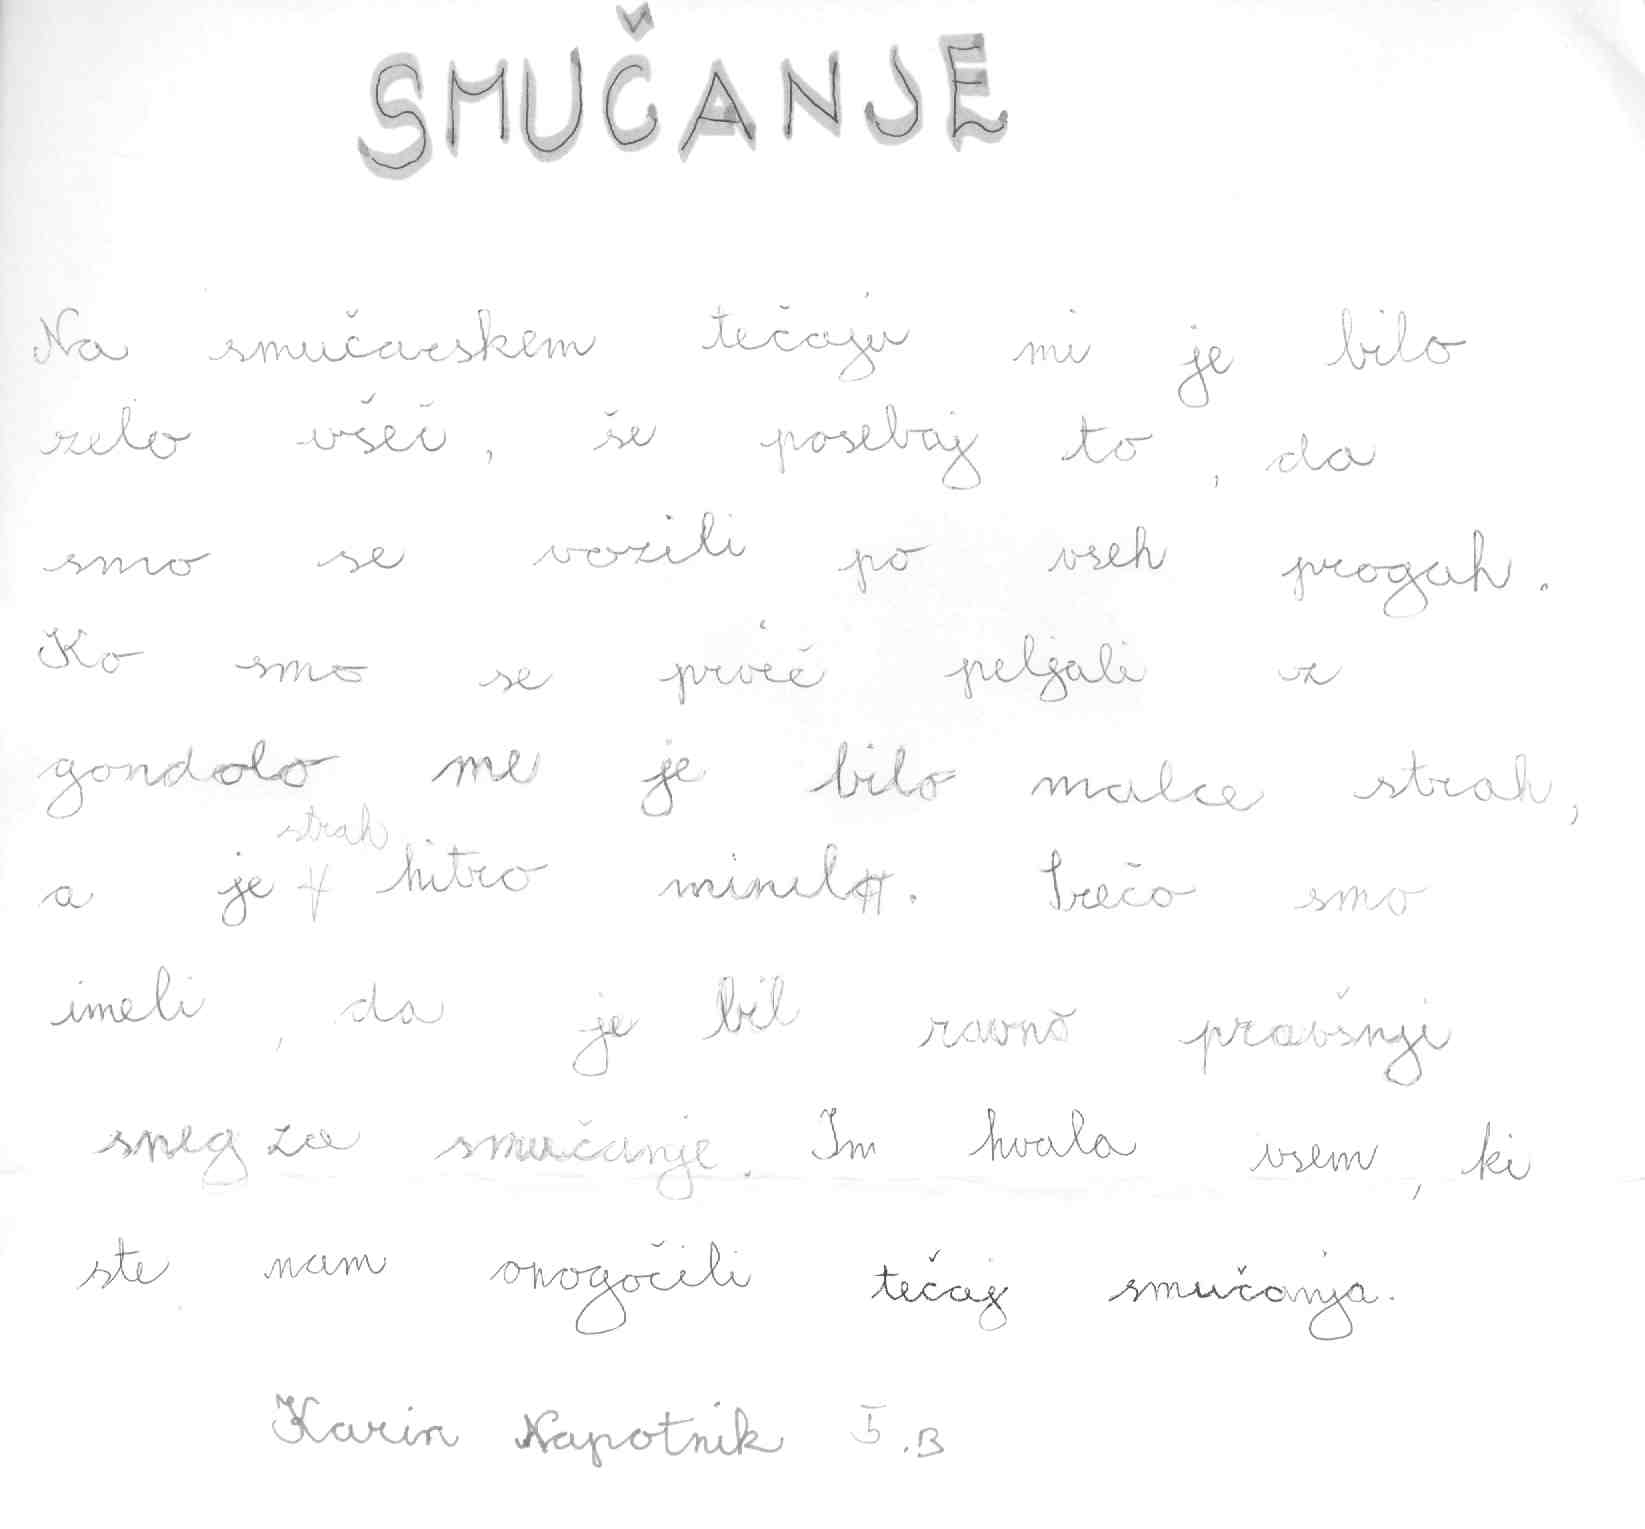 SMUČANJE
Na smučarskem tečaju mi je bilo
zelo všeč, še posebaj to, da
smo se vozili po vseh progah.
Ko smo se prvič peljali z
gondolo me je bilo malce strah,
a je strah hitro minil. Srečo smo
imeli, da je bil ravno pravšnji
sneg za smučanje. Im hvala vsem, ki
ste nam onogočili tečaj smučanja.
Karin Napotnik 5.B